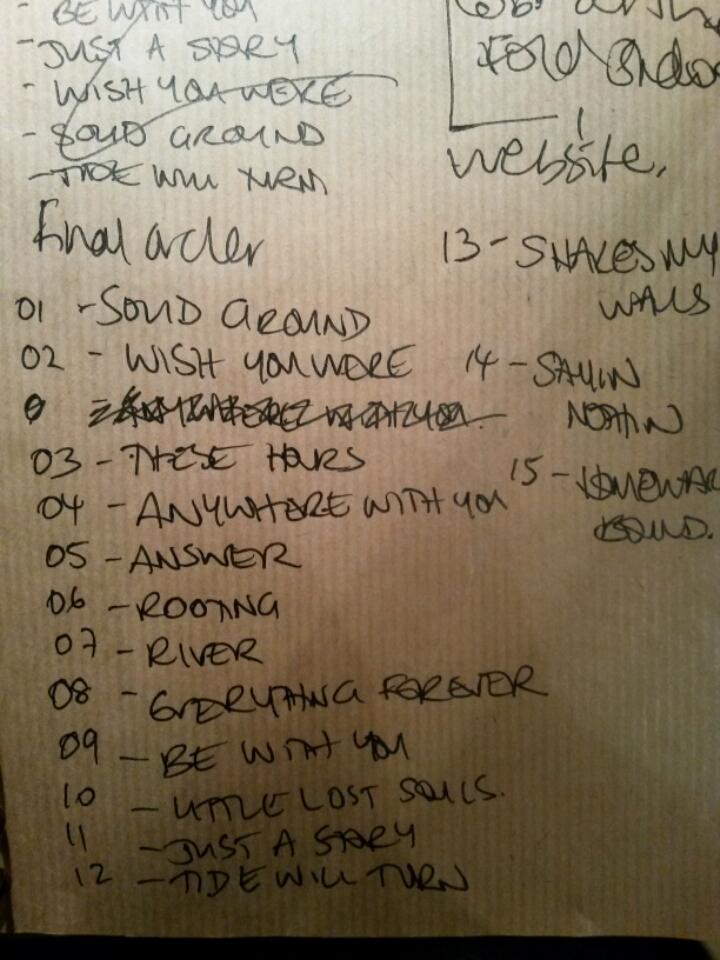 - BE WITH YOU
- JUST A STORY
- WISH YOU WERE
- SOLID GROUND
- TIDE WILL TURN
Fold
website.
final order
01 - SOLID GROUND
02 - WISH YOU WERE
0
03 - THESE HOURS
04 - ANYWHERE WITH YOU
05 - ANSWER
06 - ROOTING
07 - RIVER
08 - EVERYTHING FOREVER
09 - BE WITH YOU
10 - LITTLE LOST SOULS.
11 - JUST A STORY
12 - TIDE WILL TURN
13 - SHAKES MY
WALLS
14 - SAYIN
NOTHIN
15 - HOMEWAR
BOUND.